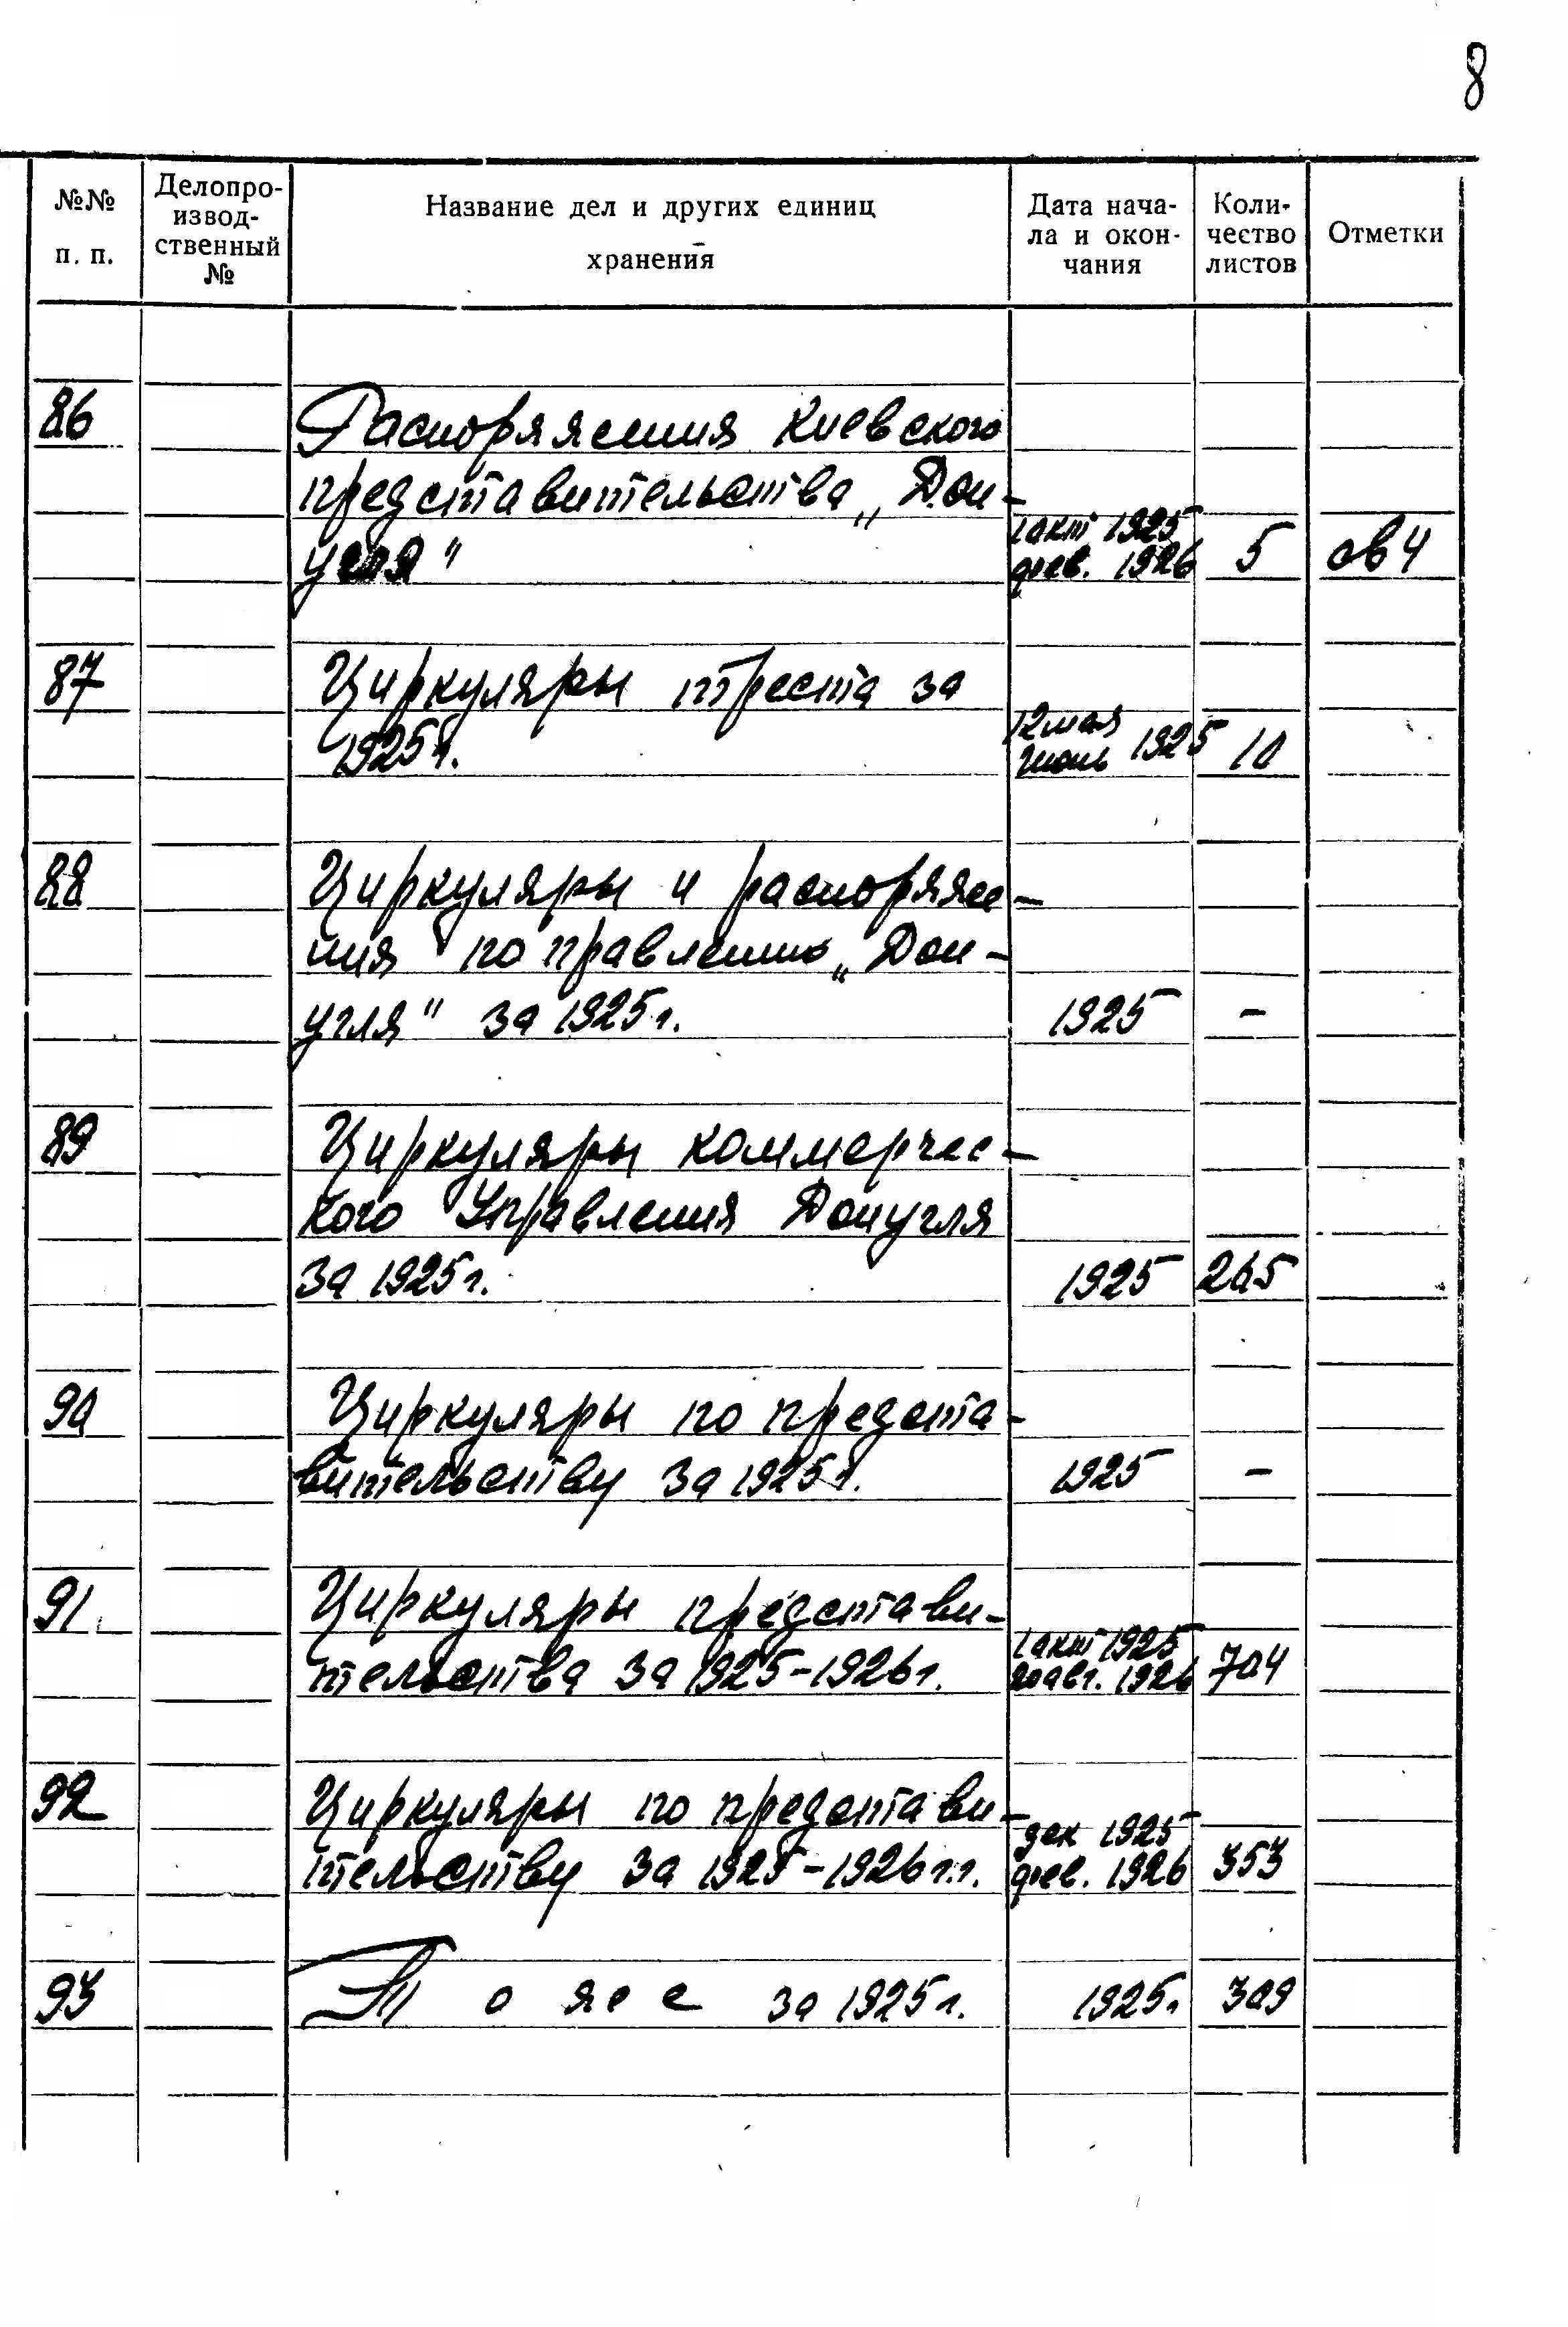 8
№№ п. п.
Делопро-
извод-
ственный
№
Название дел и других единиц
хранения
Дата нача-
ла и окон-
чания
Коли-
чество
листов
Отметки
86
Распоряжения Киевского
представительства „Дон-
угля"
1 окт 1925
фев. 1926
5
св 4
87
Циркуляры треста за
1925 г.
12 мая
июнь 1925
10
88
Циркуляры и распоряже-
ния по правлению „Дон-
угля" за 1925 г.
1925
-
89
Циркуляры коммерчес-
кого Управления Донугля
за 1925 г.
1925
265
90
Циркуляры по предста-
вительству за 1925 г.
1925
-
91
Циркуляры представи-
тельства за 1925-1926 г.
1 окт 1925
20 авг. 1926
704
92
Циркуляры по представи-
тельству за 1925-1926 г.г.
дек 1925
фев. 1926
353
93
Тоже за 1925 г.
1925 г
309